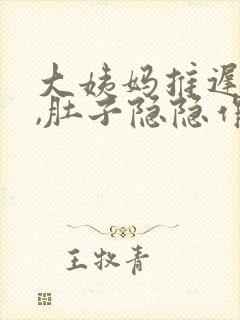 大姨妈推迟
,肚子隐隐作
王牧青